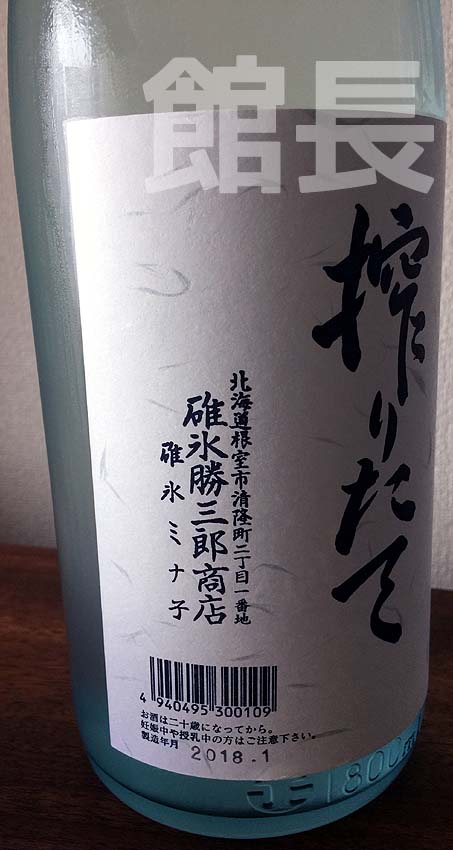 館長
搾りたて
北海道根室市清隆町二丁目一番地
碓氷勝三郎商店
碓氷ミナ子
4 940495 300109
お酒は二十歳になってから。
妊娠中や授乳中の方はご注意下さい。
製造年月 2018.1
正 1800m